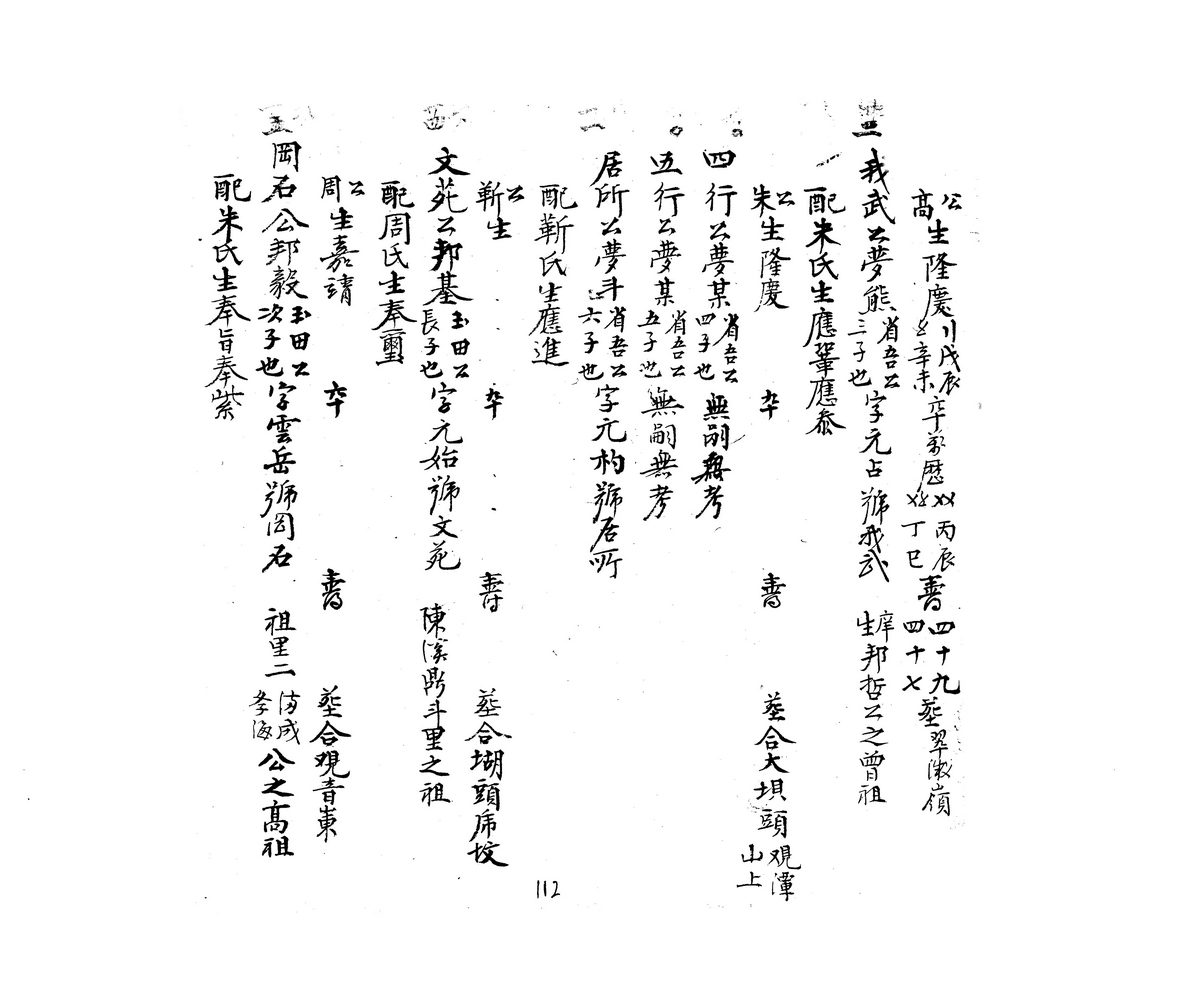 公高生隆慶戊辰辛未卒萬歷丙辰丁巳壽四十九四十七塟翠微嶺
三 我武公夢熊省吾公三子也字元占號我武 庠生邦哲公之曾祖
配朱氏生應鞏應泰
公朱生隆慶 卒 壽 塟合大垻頭觀潭山上
四行公夢某省吾公四子也無嗣無考
五行公夢某省吾公五子也無嗣無考
二 居所公夢斗省吾公六子也字元杓號居所
配靳氏生應進
公靳生 卒 壽 塟合坳頭席坟
文苑公邦基玉田公長子也字元始號文苑 陳溪鼎斗里之祖
配周氏生奉璽
公周生嘉靖 卒 壽 塟合观音東
五 岡石公邦毅玉田公次子也字雲岳號岡石 祖里二成孝海公之高祖
配朱氏生奉旨奉紫
112